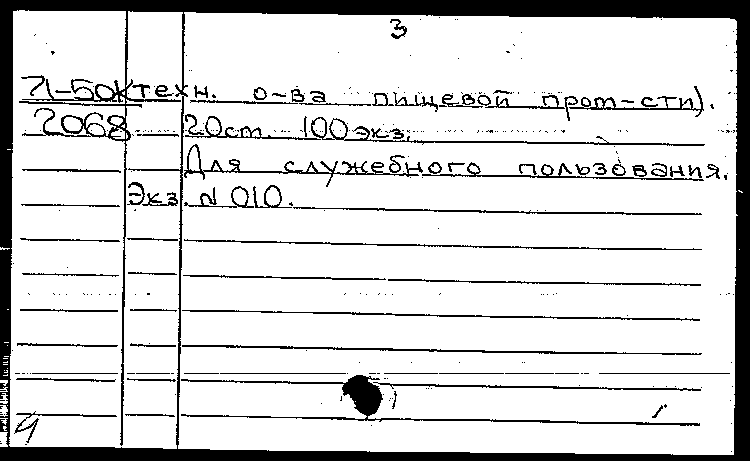 3
71-50к техн. о-ва пищевой пром-сти).
2068 20см. 100экз.
Для служебного пользования.
Экз. N 010.